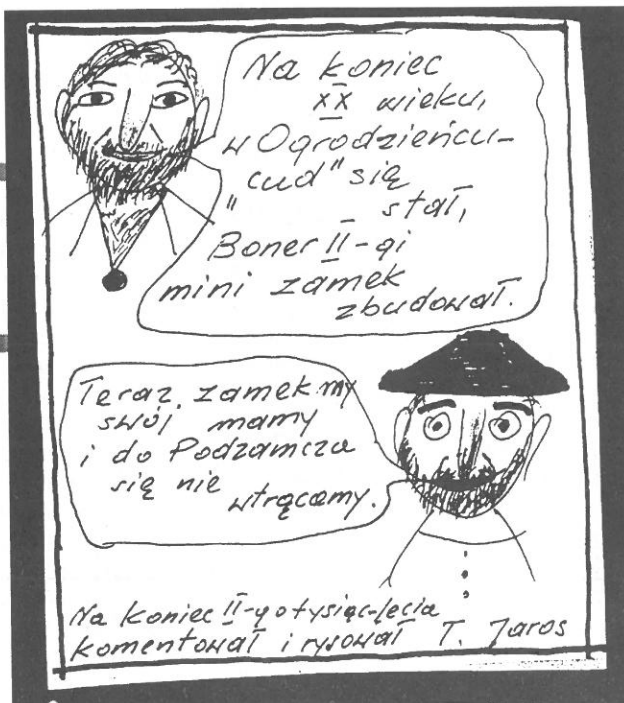 Na koniec
XX wieku,
w Ogrodzieńcu-
"cud" się
stał,
Boner II-gi
mini zamek
zbudował.
Teraz, zamek my
swój mamy
i do Podzamcza
się nie
wtrącamy.
Na koniec II-go tysiąc-lecia
komentował i rysował T. Jaros